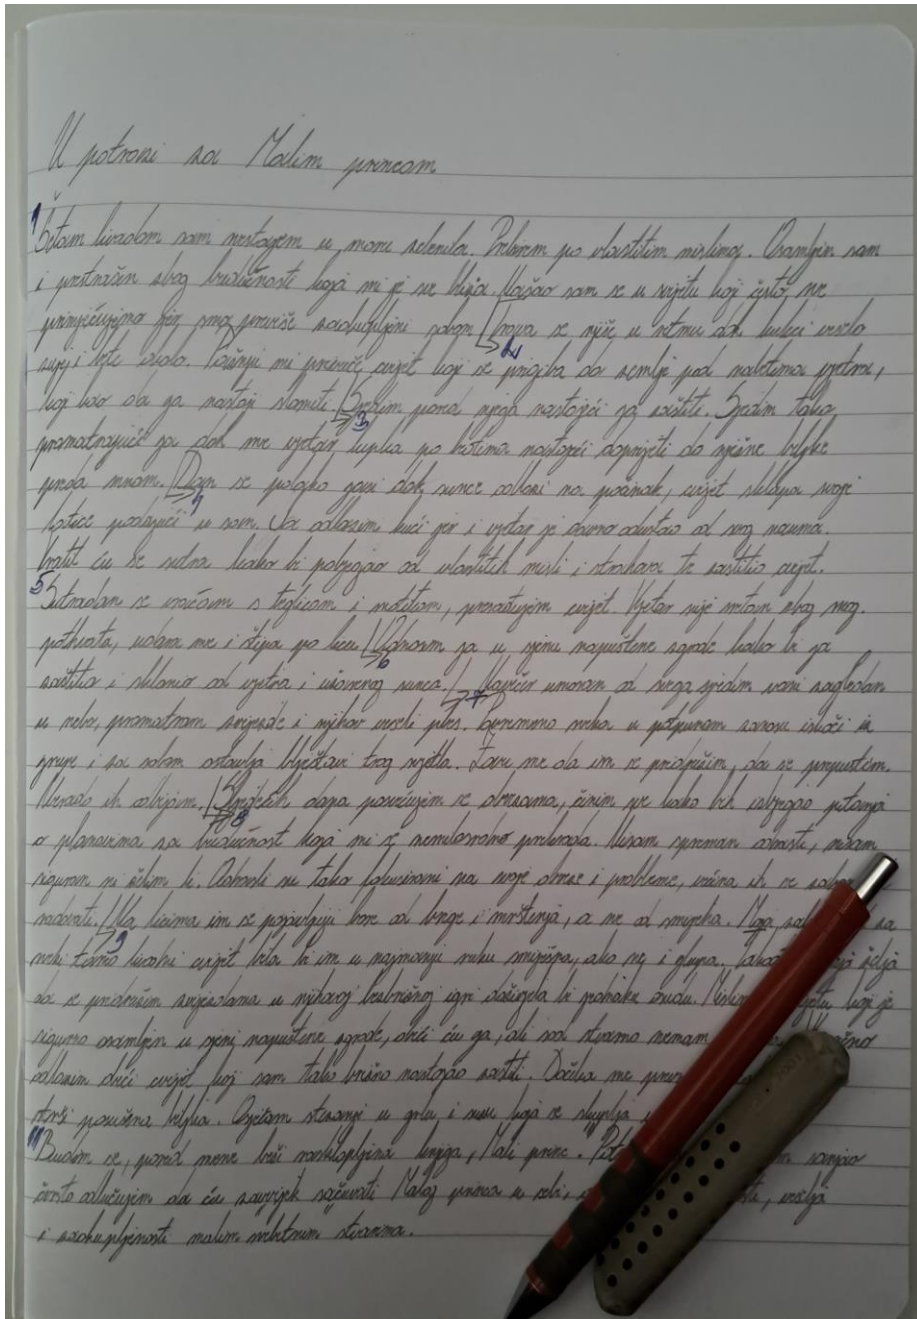 U potrazi za Malim princom
1 Šetam livadom sam nestajem u moru zelenila. Prebirem po vlastitim mislima. Osamljen sam
i prestrašen zbog budućnosti koja mi je sve bliža. Našao sam se u svijetu koji često ne
primjećujemo jer smo previše zaokupljeni sobom. trava se njiše u ritmu dok kukci veselo
2
zuje i lete okolo. Pažnju mi privuče cvijet koji se prigiba do zemlje pod naletima vjetra,
koji kao da ga nastoji slomiti. Sjedim pored njega nastojeći ga zaštiti. Sjedim tako
3
promatrajući ga dok me vjetar lupka po leđima nastojeći doprijeti do nježne biljke
preda mnom. Dan se polako gasi dok sunce odlazi na počinak, cvijet sklapa svoje
4
latice padajući u san. Ja odlazim kući jer i vjetar je davno odustao od svog nauma.
Vratit ću se sutra kako bi pobjegao od vlastitih misli i strahova te zaštitio cvijet.
5 Sutradan se vraćam s teglicom i motikom, presađujem cvijet. Vjetar nije sretan zbog mog
pothvata, udara me i štipa po licu. Odnosim ga u sjenu napuštene zgrade kako bi ga
6
zaštitio i sklonio od vjetra i užarenog sunca. Navečer umoran od svega sjedim vani zagledan
7
u nebo, promatram zvijezde i njihov veseli ples. Povremeno neka u potpunom zanosu iskoči iz
grupe i za sobom ostavlja blještavi trag svjetla. Zovu me da im se pridružim, da se prepustim.
Nerado ih odbijam. Sljedećih dana posvećujem se obvezama, činim sve kako bih izbjegao pitanja
8
o planovima za budućnost koja mi se nemilosrdno prikrada. Nisam spreman odrasti, nisam
siguran ni želim li. Odrasli su tako fokusirani na svoje obveze i probleme, većina ih se zaboravi
radovati. Na licima im se pojavljuju bore od brige i mrštenja, a ne od smijeha. Moja za
9
neki tamo livadni cvijet bila bi im u najmanju ruku smiješna, ako ne i glupa. želja
da se pridružim zvijezdama u njihovoj bezbrižnoj igri doživjela bi jednaku osudu. koji je
sigurno osamljen u sjeni napuštene zgrade, obići ću ga, ali sad stvarno nemam
odlazim obići cvijet koji sam tako brižno nastojao zaštiti. Dočeka me
strši posušena biljka. Osjećam stezanje u grlu i suzu koja se skuplja
11 Budim se, pored mene leži rasklopljena knjiga, Mali princ. sanjao
čvrsto odlučujem da ću zauvijek sačuvati Malog princa u sebi, veselja
i zaokupljenosti malim nebitnim stvarima.